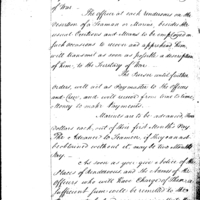 of War.
The officer at each rendezvous on the
desertion of a Seaman or Marine, besides the
usual Precautions and Means to be employed on
such occasions to recover and apprehend him,
will transmit as soon as possible a description
of him, to the Secretary of War.
The Purser until further
orders, will act as Paymaster to the Officers
and Crew, and will receive from time to time
Money to make Payments.
Marines are to be advanced
Dollars each, out of their first Months Pay
The advance to Seamen if they can not
be obtained without it, may be two Months
Pay.
As soon as you give a notice of the
Places of Rendezvous and the names of the
officers who will have Charge of them, a
sufficient sum will be remitted to the